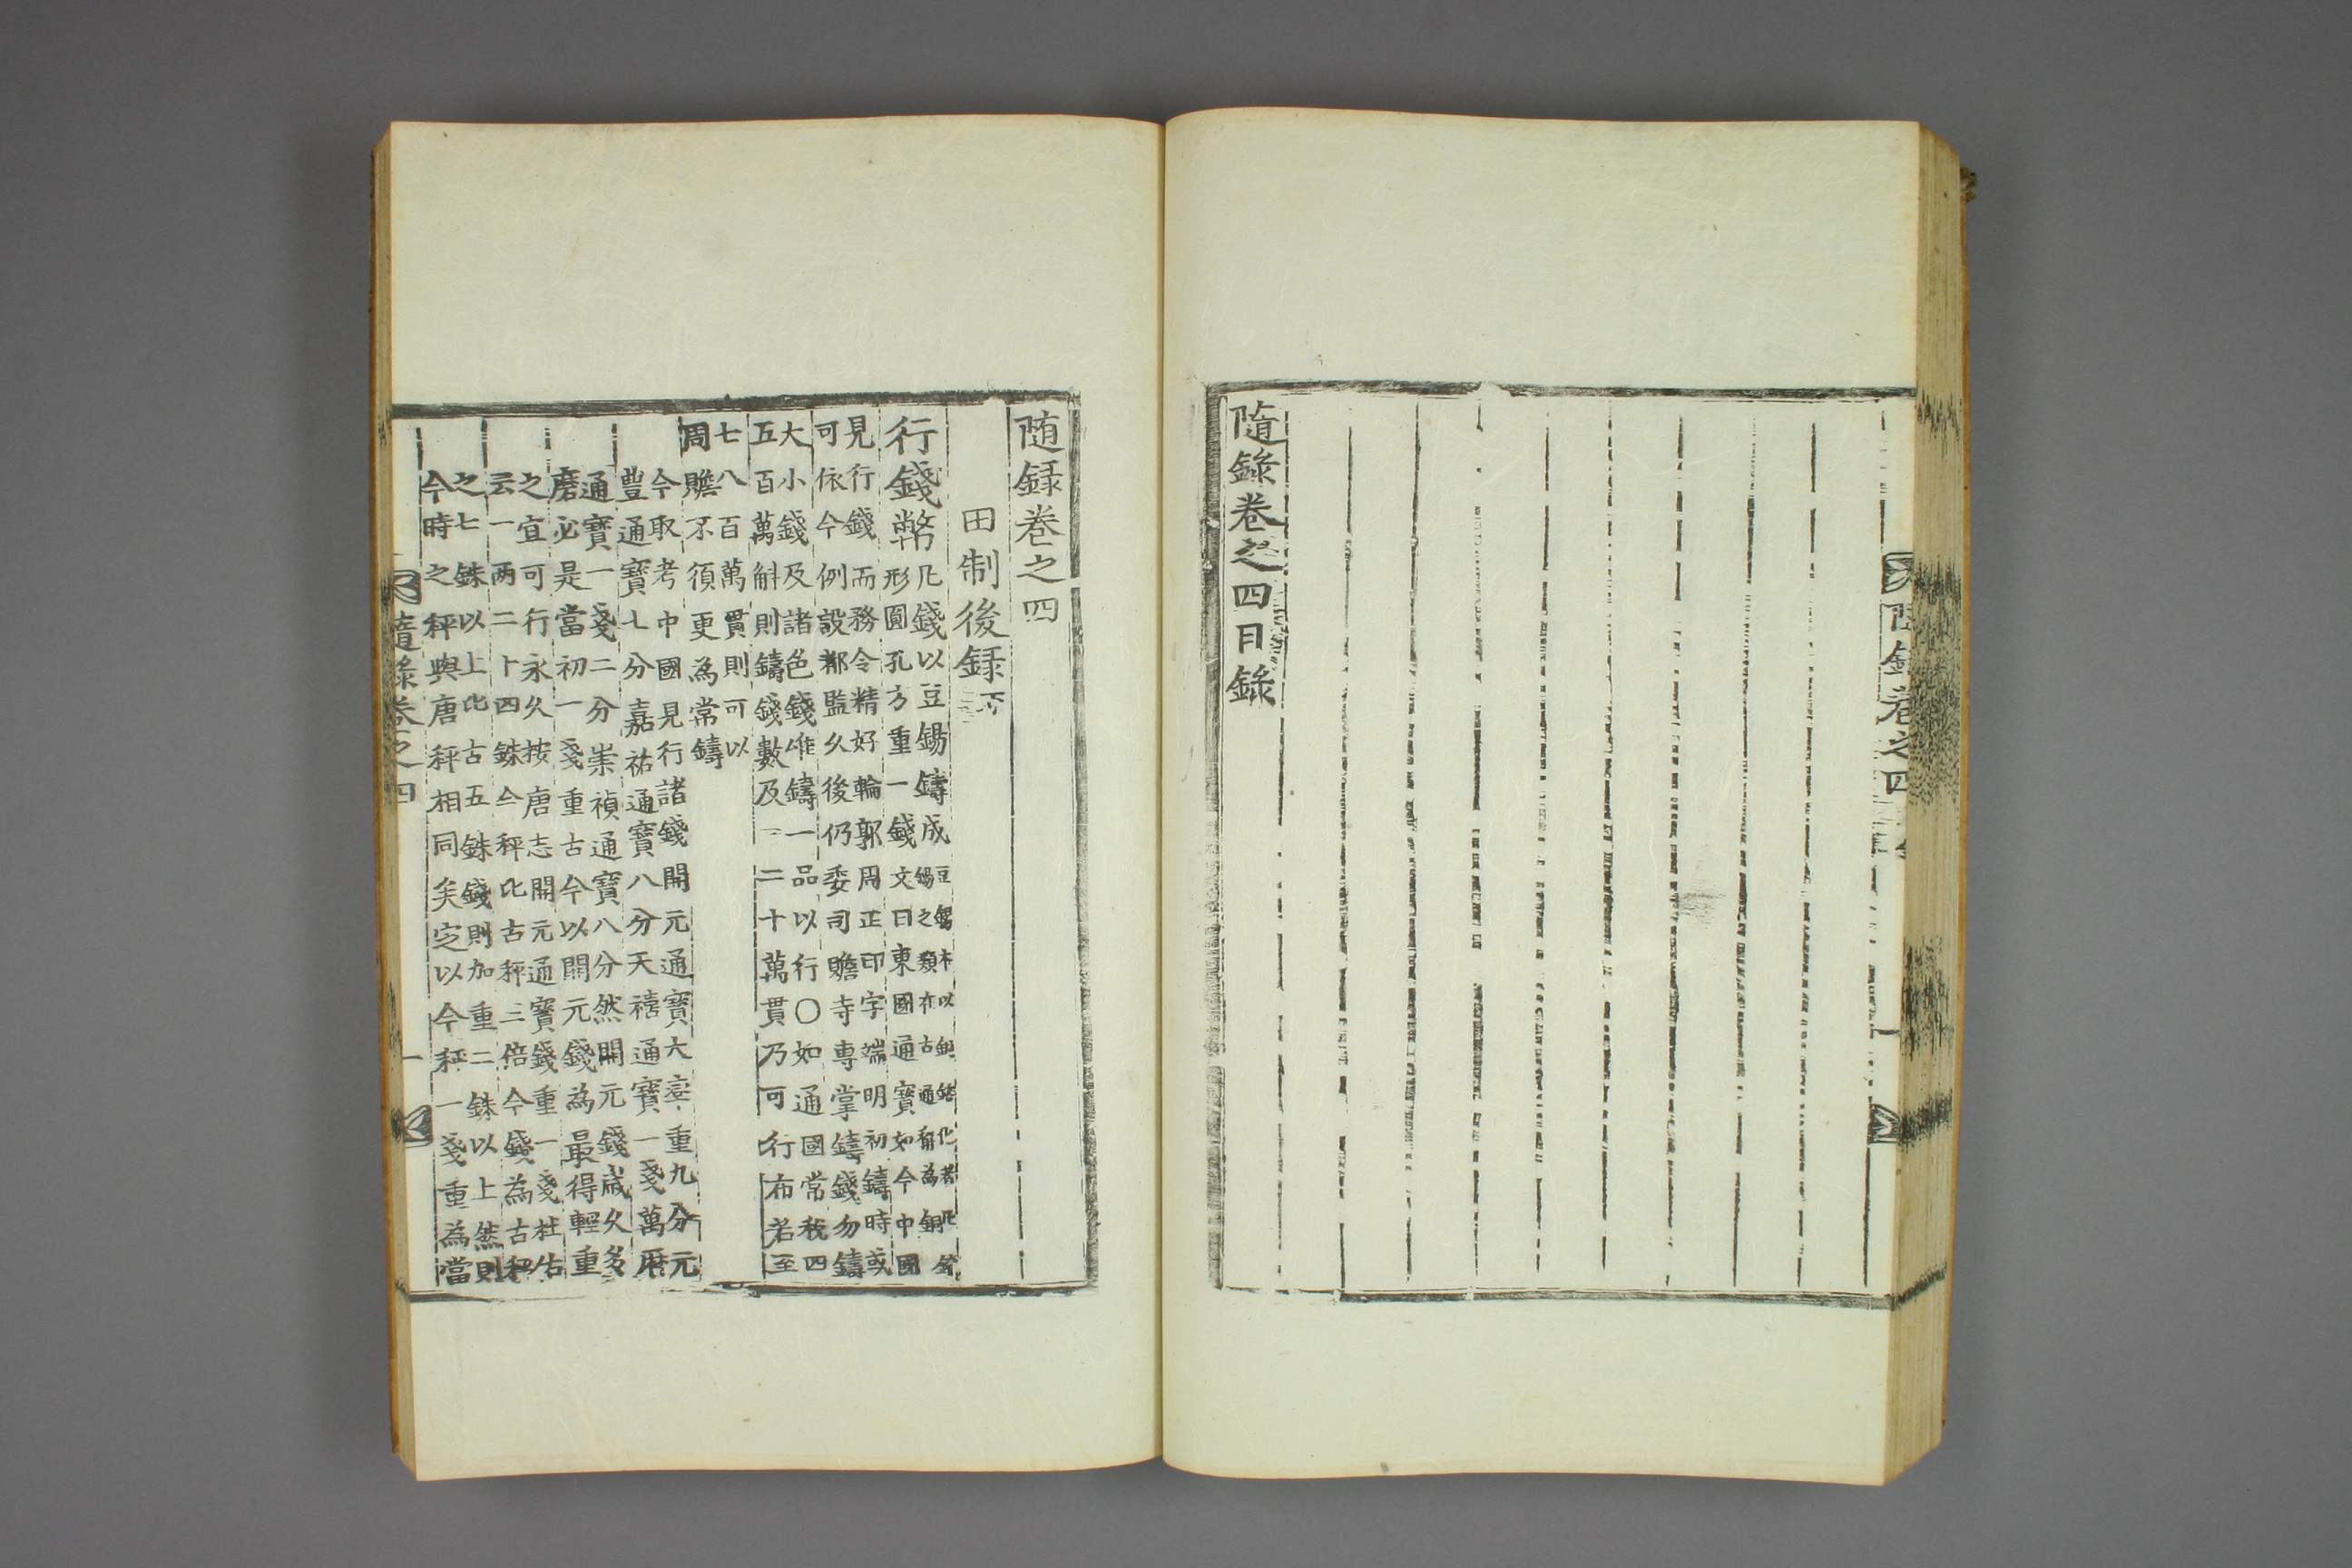 隨錄卷之四
隨錄卷之四目錄
随録卷之四
田制後録下
行錢幣
凡錢以豆錫鑄成
豆錫本以鍮鉐化者凡鍮
錫之類在古通稱為銅
形圓孔方重一錢文曰東國通寶如今中國
見行錢而務令精好輪郭周正印字端明初鑄時或
可依今例設都監久後仍委司贍寺專掌鑄錢勿鑄
大小錢及諸色錢唯鑄一品以行〇如通國常税四
五百萬斛則鑄錢數及一二十萬貫乃可行布若至
七八百萬貫則可以
周贍不須更為常鑄
今取考中國見行諸錢開元通寶大臺重九分元
豐通寶七分嘉祐通寶八分天禧通寶一戔萬曆
通寶一戔二分崇禎通寶八分然開元錢歲久多
磨必是當初一戔重古今以開元錢為最得輕重
之宜可行永久按唐志開元通寶錢重一戔杜佑
云一两二十四銖今秤比古秤三倍今錢為古秤
之七銖以上比古五銖錢則加重二銖以上然則
今時之秤與唐秤相同矣定以今秤一戔重為當
隨錄卷之四
一